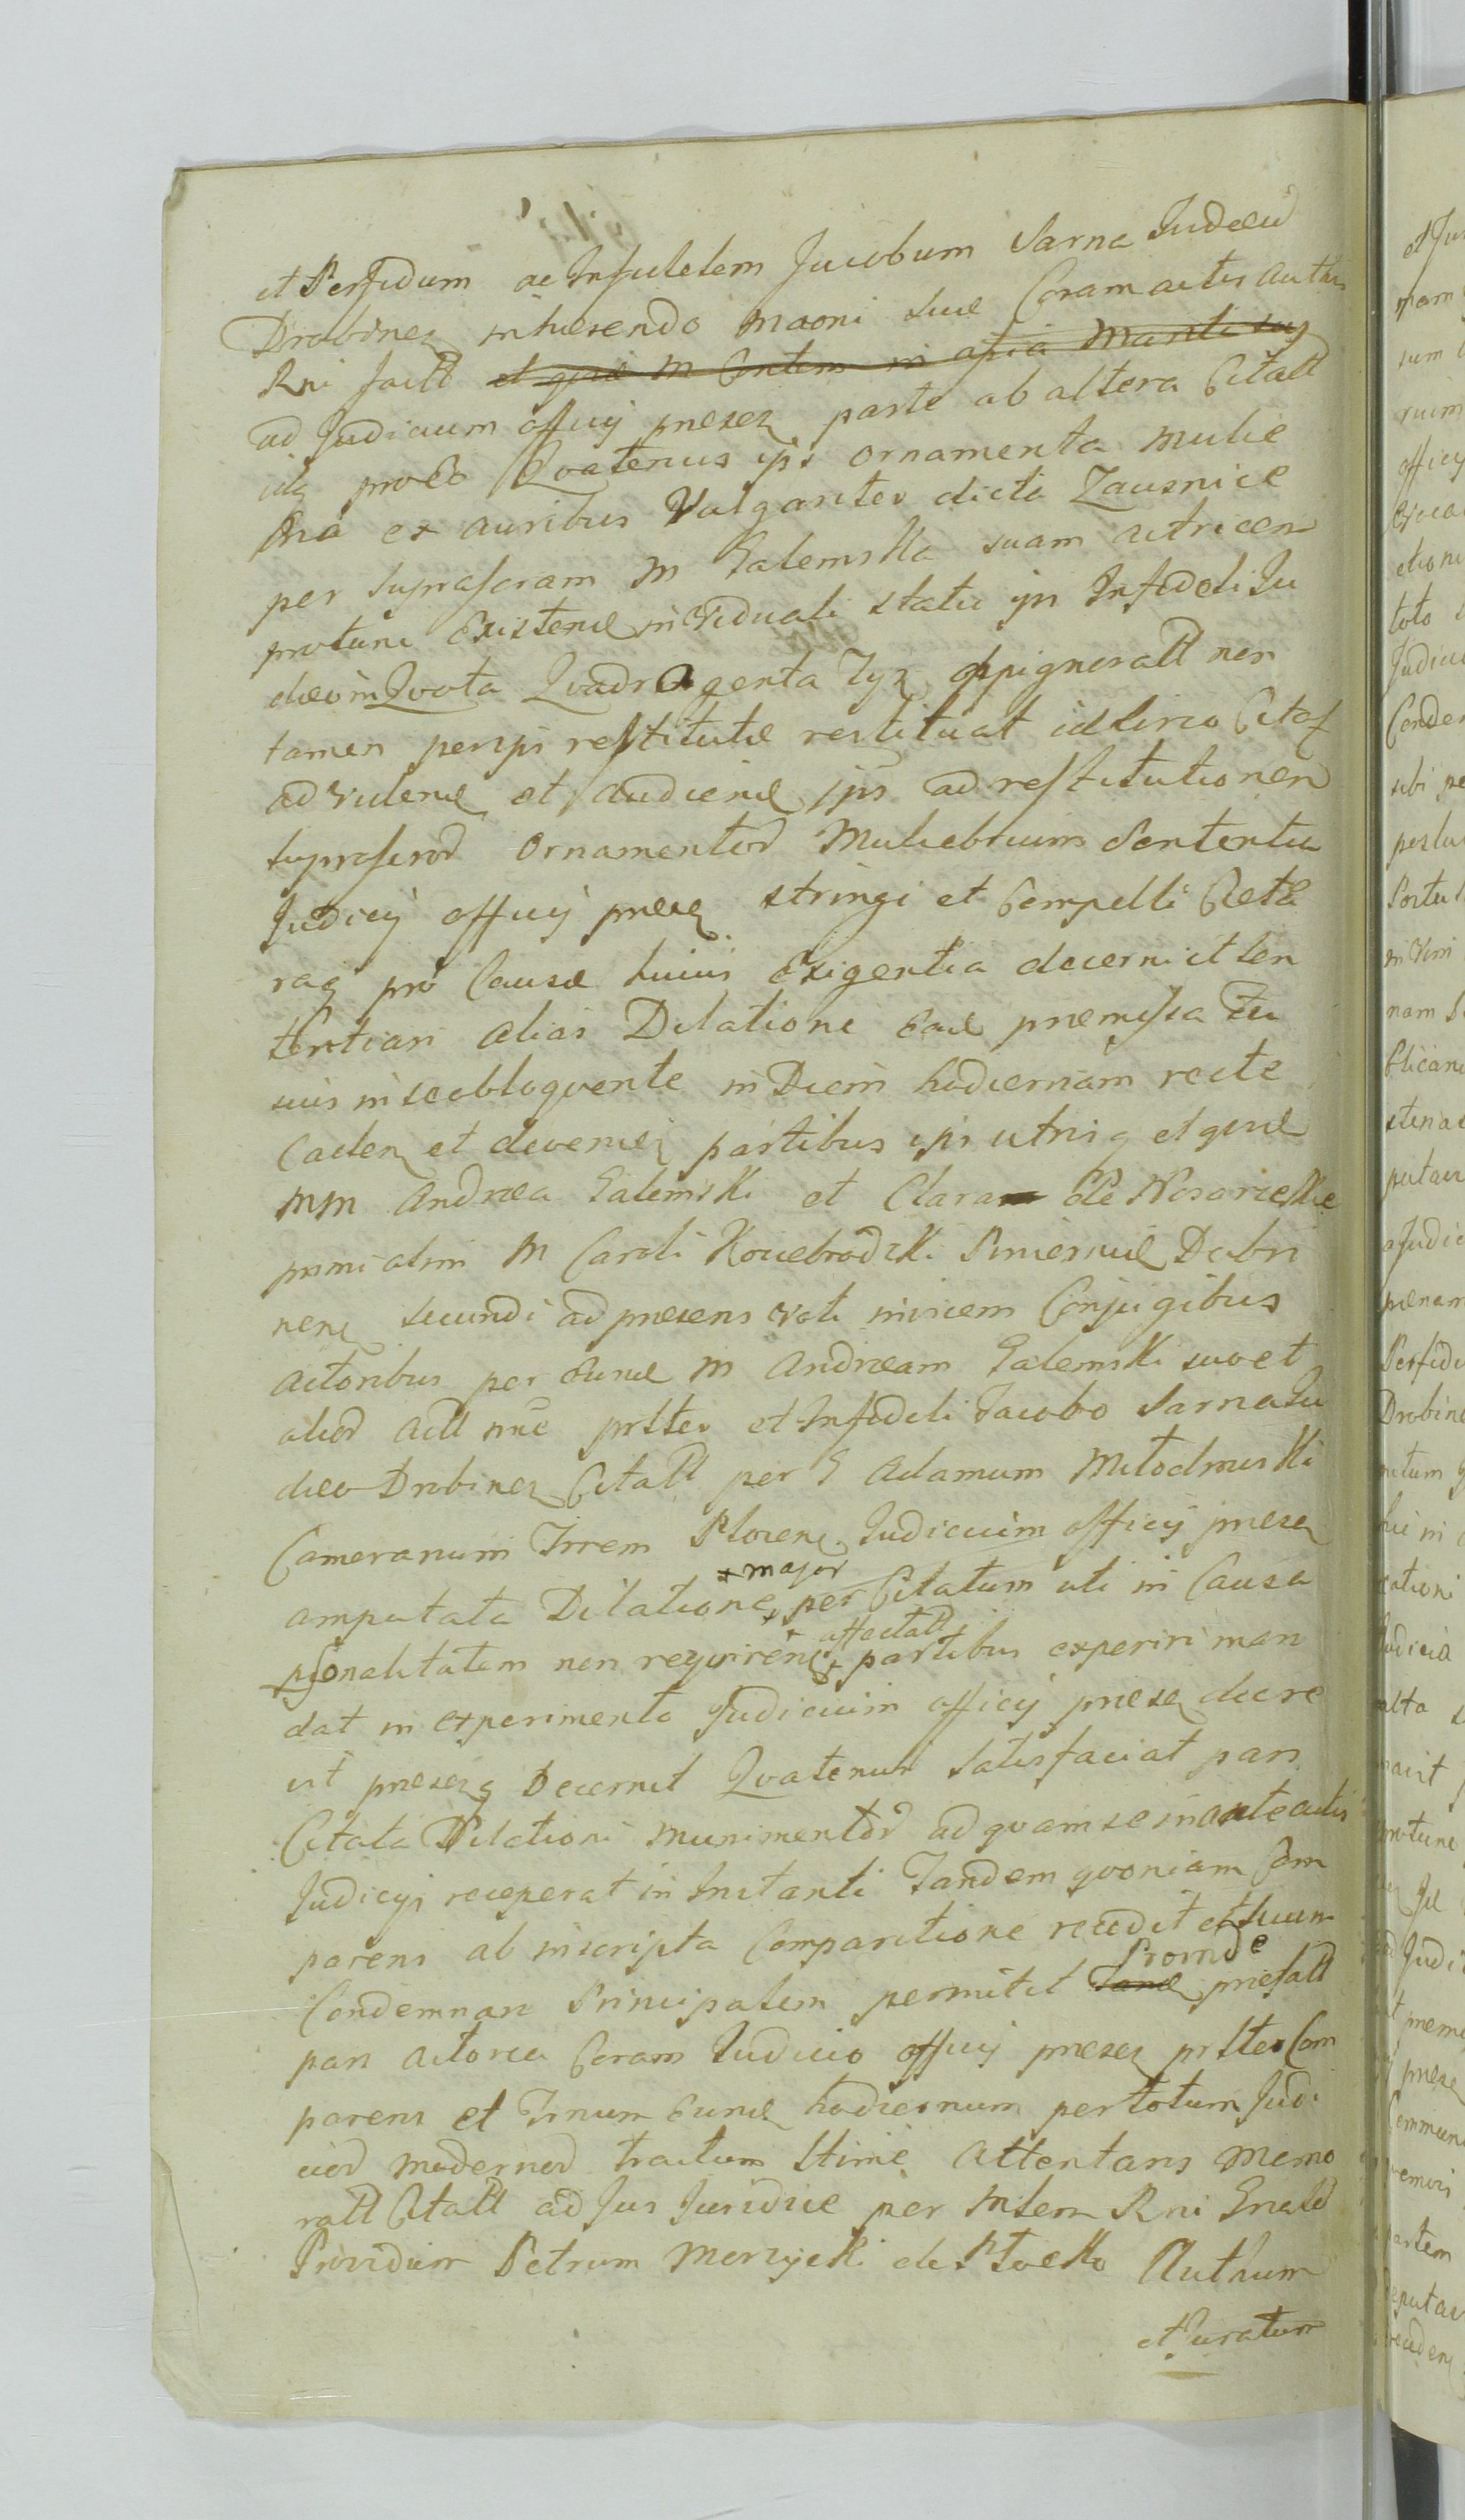 et Perfidum ac Infidelem Jacobum Sarna Judæū
Drobinen inhærendo maoni suæ Coram actis authis
Rni factt et qræ M Contem in asia Manti suy
ad Judicium officij præsen parte ab altera Citatt
idq pro eo Qvatenus ipse ornamenta mulie
bria ex auribus Vulgariter dicta Zausnice
per suprascram M Galemska suam actricem
protunc Existene in Viduali statu ipi Infideli Ju
dæo in Qvota Qvadragenta Tyn oppignoratt non
tamen per ipi restitutæ restituat idcirco Citat
ad Videnđ et Audienđ ipi ad restitutionem
suprascrod ornamentod Muliebrium Sententia
Judicij officij præsen stringi et Compelli Cæte
raq pro Causæ huius Exigentia decerni et sen
tentiari alias Dilatione Eađ præmissa
suis in se obloqvente in Diem hodiernam recte
Caden et devenien partibus ipi utrisq et gnđ
MM Andrea Galemski et Clara de Kosarieskie
primi olim M Caroli Koricbrodzki Pincernæ Dobri
nen secundi ad præsens voti invicem Conjugibus
actoribus per Eunđ M Andream Galemski suo et
aliod actt nnē prstter et Infideli Jacobo Sarna Ju
dæo Drobinen Citatt per G Adamum Młodzinski
Camerarium Trrem Plocen Judicium officij præsen
amputata Dilatione + major per Citatum uti in Causa
psonalitatem non reqviren + affectatt partibus experiri man
dat in experimento Judicium officij præsen decre
vit præsenq Decernit Qvatenus satisfaciat pars
Citata Dilationi munimentod ad qvam se in anteactis
Judicijs receperat in Instanti Tandem qvoniam Com
parens ab inscripta Comparitione recedit et suum
Condemnari Principalem permitit Tanđ Proinde præfatt
pars actorea Coram Judicio officij præsen prstter Com
parens et Trnum Eunđ hodiernum per totum Judi
ciod modernod tractum stinē Attentans memo
ratt Citatt ad Jus Juridice per Mlem Rni Gnalđ
Providum Petrum Merzycki de Płocko Authum
et Juratum